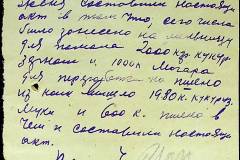 время составили настоящ
акт в том что, сего числа
было занесено на мельницу
для помола 2000 кгр. кукур
зы и 1000 к Могара
для передачи на пшено
из них вышло 1980 к. кукуруз.
Муки и 600 к. пшено в
чем и составили настоящ
акт.